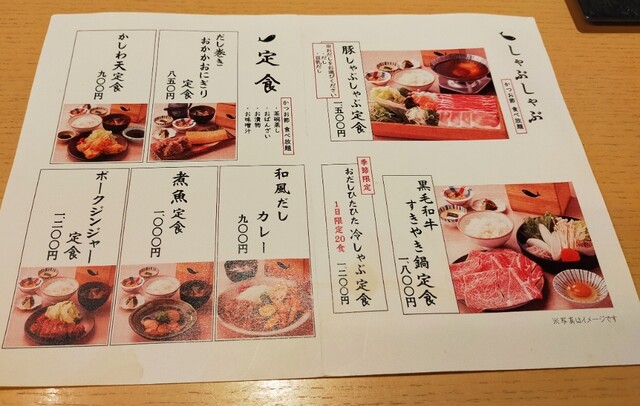 しゃぶしゃぶ
かつお節 食べ放題
豚しゃぶしゃぶ定食
一、五〇〇円
黒毛和牛
すきやき鍋定食
一、八〇〇円
季節限定
おだしひたひた 冷しゃぶ定食
1日限定20食
一、二〇〇円
※写真はイメージです
定食
かつお節 食べ放題
・茶碗蒸し
・おばんざい
・お漬物
・お味噌汁
だし巻き
おかかおにぎり
定食
八五〇円
かしわ天定食
九〇〇円
和風だし
カレー
九〇〇円
煮魚定食
一、〇〇〇円
ポークジンジャー
定食
一、二〇〇円